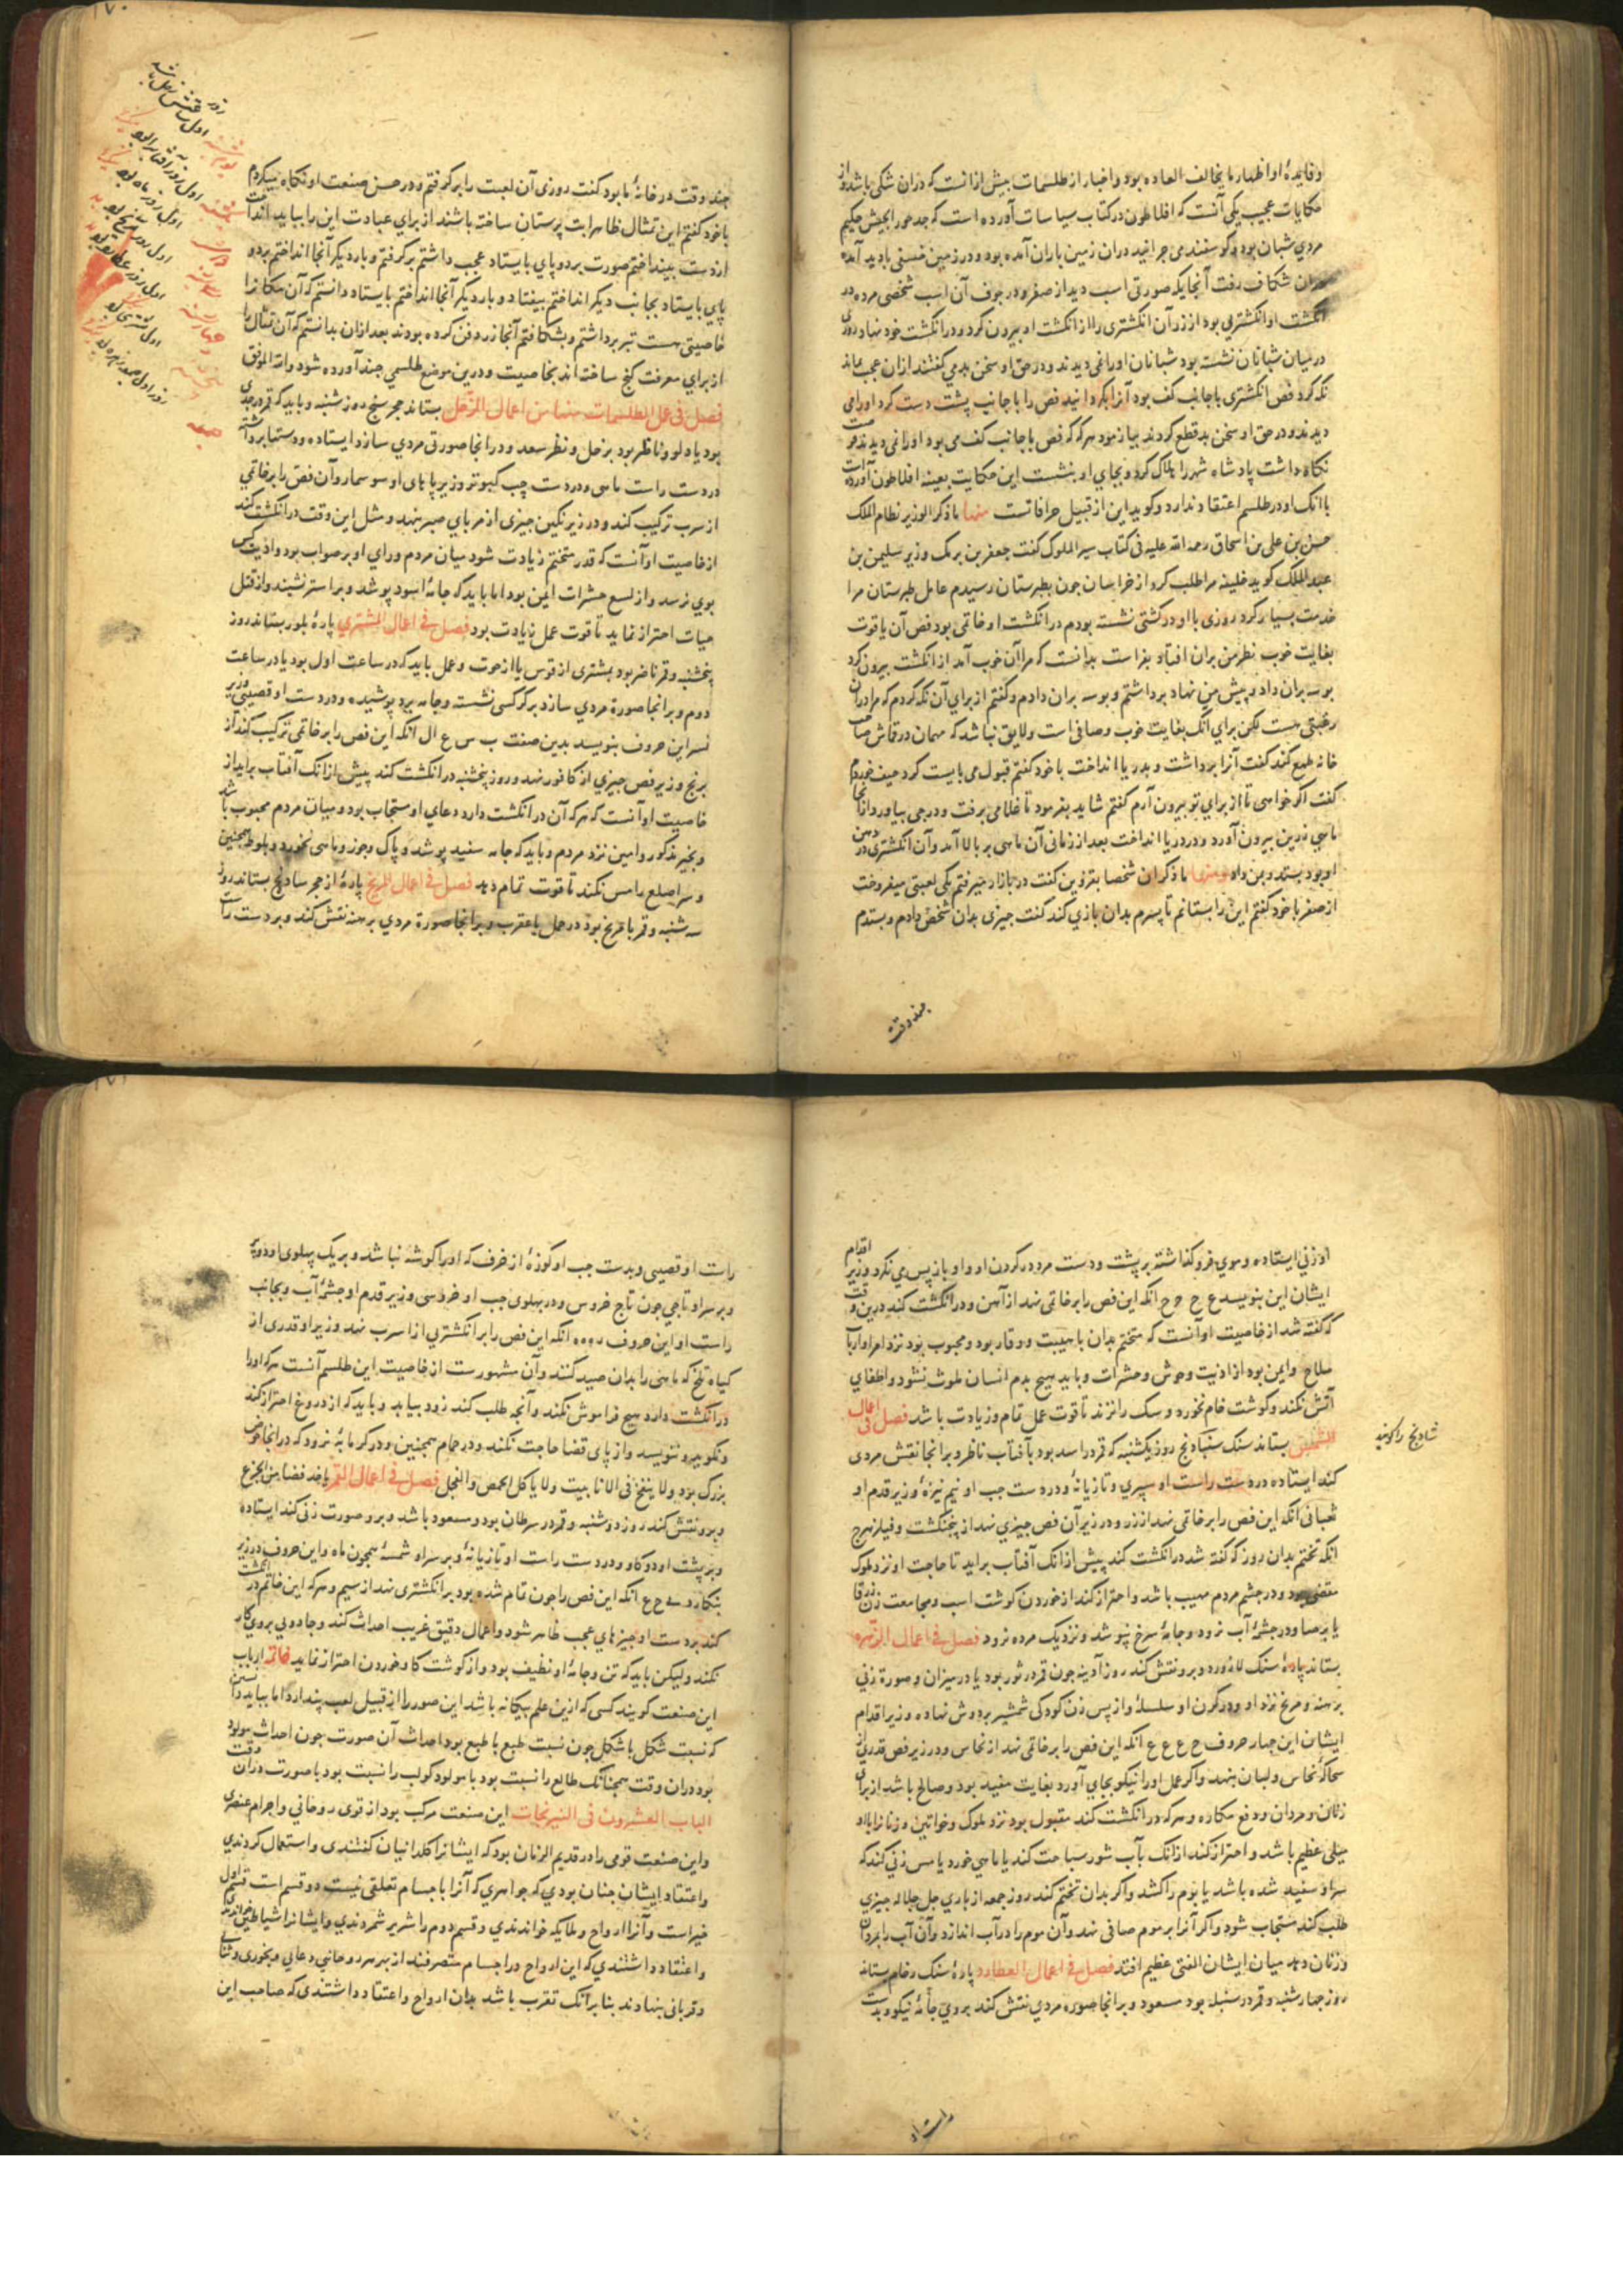 و فایدهٔ او اظهار ما یخالف العاده بود و اخبار از طلسمات بیش ازانست که دران شکی باشد و از
حکایات عجیب یکی آنست که افلاطون در کتاب سیاسات آورده است که جد جور الجیش حکیم
مردی شبان بود و کوسفندی چرانید دران زمین باران آمده بود و در زمین خسفی بادید آمده
دران شکاف رفت آنجایکه صورتی اسب دید از صفر و در جوف آن اسب شخصی مرده در
انکشت او انکشتریی بود از زر آن انکشتری را از انکشت او بیرون کرد و در انکشت خود نهاد روزی
در میان شبانان نشسته بود شبانان او را نمی دیدند و در حق او سخن بد می کفتند ازان عجب بماند
نکه کرد فص انکشتری باجانب کف بود آنرا بکردانید فص را باجانب پشت دست کرد او را می
دیدند و در حق او سخن بد قطع کردند بیازمود هرکه که فص باجانب کف می بود او را نمی دیدند
نکاه داشت پادشاه شهر را هلاک کرد و بجای او بنشست این حکایت بعینه افلاطون آورده است
باانک او در طلسم اعتقاد ندارد و کوید این از قبیل خرافاتست منها ما ذکر الوزیر نظام الملک
حسن بن علی بن اسحاق رحمه الله علیه فی کتاب سیر الملوک کفت جعفر بن برمک وزیر سلیمن بن
عبدالملک کوید خلیفه مرا طلب کرد از خراسان جون بطبرستان رسیدم عامل طبرستان مرا
خدمت بسیار کرد روزی با او در کشتی نشسته بودم در انکشت او خاتمی بود فص آن یاقوت
بغایت خوب نظر من بران افتاد بفراست بدانست که مرا آن خوب آمد از انکشت بیرون کرد
بوسه بران داد و پیش من نهاد برداشتم و بوسه بران دادم و کفتم از برای آن نکه کردم که مرا دران
رغبتی هست لکن برای انک بغایت خوب و صافی است و لایق نباشد که مهمان در قماش صاحب
خانه طمع کند کفت آنرا برداشت و بدریا انداخت باخود کفتم قبول می بایست کرد حیف خوردم
کفت اکر خواهی تا از برای تو بیرون آرم کفتم شاید بفرمود تا غلامی برفت و درجی بیاورد ازانجا
ماهیی زرین بیرون آورد و در دریا انداخت بعد از زمانی آن ماهی بر بالا آمد و آن انکشتری در دهن
او بود بستد و بمن داد و منها ما ذکر ان شخصا بقزوین کفت در بازار میرفتم یکی لعبتی میفروخت
از صفر باخود کفتم این را بستانم تا پسرم بدان بازی کند کفت جیزی بدان شخص دادم و بستدم
جند وقت
جند وقت در خانهٔ ما بود کفت روزی آن لعبت را برکرفتم و در حسن صنعت او نکاه میکردم
باخود کفتم این تمثال ظاهرا بت پرستان ساخته باشند از برای عبادت این را بباید انداخت
از دست بینداختم صورت بر دو پای بایستاد عجب داشتم برکرفتم و بار دیکر آنجا انداختم بر دو
پای بایستاد بجانب دیکر انداختم بیفتاد و بار دیکر آنجا انداختم بایستاد دانستم که آن مکانرا
خاصیتی هست تبر برداشتم و بشکافتم آنجا زر دفن کرده بودند بعد ازان بدانستم که آن تمثال را
از برای معرفت کنج ساخته اند بخاصیت و درین موضع طلسمی جند آورده شود والله الموفق
فصل فی عمل الطلسمات منها من اعمال الزحل بستاند حجر سنج روز شنبه و باید که قمر در جدی
بود یا دلو و ناظر بود بزحل و نظر سعد و در انجا صورتی مردی سازد ایستاده و دستها برداشته
در دست راست ماهی و در دست چپ کبوتر و زیر پا های او سوسمار و آن فص را بر خاتمی
از سرب ترکیب کند و در زیر نکین جیزی از مربای صبر بنهد و مثل این وقت در انکشت کند
از خاصیت او آنست که قدر متختم زیادت شود میان مردم و رای او بر صواب بود و اذیت کس
بوی نرسد و از لسع حشرات ایمن بود اما باید که جامهٔ اسود پوشد و بر استر نشیند و از قتل
حیات احتراز نماید تا قوت عمل زیادت بود فصل فی اعمال المشتری پارهٔ بلور بستاند روز
پنجشنبه و قمر ناضر بود بمشتری از قوس یا از حوت و عمل باید که در ساعت اول بود یا در ساعت
دوم و بر انجا صورهٔ مردی سازد بر کرکسی نشسته و جامه برد پوشیده و در دست او قصیبی و زیر
نسر این حروف بنویسد بدین صفت ب س ع ال انکه این فص را بر خاتمی ترکیب کند از
برنج و زیر فص جیزی از کافور نهد و روز پنجشنبه در انکشت کند پیش ازانک آفتاب براید از
خاصیت او آنست که هرکه آن در انکشت دارد دعای او مستجاب بود و میان مردم محبوب باشد
و بخیر مذکور و امین نزد مردم و باید که جامه سفید پوشد و پاک و جوز و ماهی نخورد و بلوط همچنین
و سر اصلع را مس نکند تا قوت تمام دهد فصل فی اعمال المریخ پارهٔ از حجر سادنج بستاند روز
سه شنبه و قمر با مریخ بود در حمل یا عقرب و بر انجا صورهٔ مردی برهنه نقش کند و بر دست راست
او زنی ایستاده و موی فرو کذاشته بر پشت و دست مرد در کردن او و او باز پس می نکرد و زیر اقدام
ایشان این بنویسد ع ح ح ح انکه این فص را بر خاتمی نهد از آهن و در انکشت کند درین وقت
که کفته شد از خاصیت او آنست که متختم بدان با هیبت و وقار بود و محبوب بود نزد امرا و ارباب
سلاح و ایمن بود از اذیت وحوش و حشرات و باید هیچ بدم انسان ملوث نشود و اطفای
آتش نکند و کوشت خام نخورد و سک را نزند تا قوت عمل تمام و زیادت باشد فصل فی اعمال
الشمس بستاند سنک سنباذنج روز یکشنبه که قمر در اسد بود بآفتاب ناظر و بر انجا نقش مردی
کند ایستاده در دست راست او سپری و تازیانهٔ و در دست جپ او نیم نیزهٔ و زیر قدم او
ثعبانی انکه این فص را بر خاتمی نهد از زر و در زیر آن فص جیزی نهد از پنجنکشت و فیلزهرج
انکه تختم بدان روز که کفته شد در انکشت کند پیش ازانک آفتاب براید تا حاجت او نزد ملوک
مقضی بود و در جشم مردم مهیب باشد و احتراز کند از خوردن کوشت اسب و مجامعت زن زرقا
یا برصا و در جشمهٔ آب نرود و جامهٔ سرخ نپوشد و نزدیک مرده نرود فصل فی اعمال الزهره
بستاند پارهٔ سنک لازورد و برو نقش کند روز آدینه جون قمر در ثور بود یا در میزان و صورهٔ زنی
برهنه و مریخ نزد او و در کردن او سلسلهٔ و از پس زن کودکی شمشیر بر دوش نهاده و زیر اقدام
ایشان این جهار حروف ح ع ع ع انکه این فص را بر خاتمی نهد از نحاس و در زیر فص قدری از
سحاکهٔ نحاس و لبان بنهد و اکر عمل او را نیکو بجای آورد بغایت مفید بود و صالح باشد از برای
زنان و مردان و دفع مکاره و هرکه در انکشت کند مقبول بود نزد ملوک و خواتین و زنانرا با او
میلی عظیم باشد و احتراز کند ازانک بآب شور سباحت کند یا ماهی خورد یا مس زنی کند که
سر او سفید شده باشد یا بوم را کشد و اکر بدان تختم کند روز جمعه از باری جل جلاله جیزی
طلب کند مستجاب شود و اکر آنرا بر موم صافی نهد و آن موم را در آب اندازد و آن آب را بمردان
و زنان دهد میان ایشان الفتی عظیم افتد فصل فی اعمال العطارد پارهٔ سنک رخام بستاند
روز جهارشنبه و قمر در سنبله بود مسعود و بر انجا صوره مردی نقش کند بروی جامهٔ نیکو و بدست
شادنج را کویند
راست او
راست او قصیبی و بدست جپ او کوزهٔ از خزف که او را کوشه نباشد و بر یک پهلوی او دو پر
و بر سر او تاجی جون تاج خروس و در پهلوی جپ او خروسی و زیر قدم او جشمهٔ آب و بجانب
راست او این حروف ره ه ه انکه این فص را بر انکشتریی از اسرب نهد و زیر او قدری از
کیاه تلخ که ماهی را بدان صید کنند و آن مشهورست از خاصیت این طلسم آنست هرکه او را
در انکشت دارد هیچ فراموش نکند و آنجه طلب کند زود بیابد و باید که از دروغ احتراز کند
و نکوید و ننویسد و از پای قضا حاجت نکند و در حمام همچنین و در کرمابهٔ نرود که در انجا حوض
بزرک بود و لا ینفخ فی الانابیب و لا یاکل الحمص و الفجل فصل فی اعمال القمر یاخذ فصا من الجزع
و برو نقش کند روز دوشنبه و قمر در سرطان بود و مسعود باشد و برو صورت زنی کند ایستاده
و بر پشت او دو کاو و در دست راست او تازیانهٔ و بر سر او شمسهٔ همجون ماه و این حروف در زیر
بنکارد ے ح ع انکه این فص را جون تمام شده بود بر انکشتری نهد از سیم و هرکه این خاتم در انکشت
کند بر دست او جیزهای عجب ظاهر شود و اعمال دقیق غریب احداث کند و جادویی بروی کار
نکند ولیکن باید که تن و جامهٔ او نظیف بود و از کوشت کاو خوردن احتراز نماید خاتمه ارباب
این صنعت کویند کسی که ازین علم بیکانه باشد این صور را از قبیل لعب پندارد اما بباید دانستن
که نسبت شکل با شکل جون نسبت طبع با طبع بود احداث آن صورت جون احداث مولود
بود دران وقت همجنانک طالع را نسبت بود با مولود کوکب را نسبت بود با صورت دران وقت
الباب العشرون فی النیرنجات این صنعت مرکب بود از قوی روحانی و اجرام عنصری
و این صنعت قومی را در قدیم الزمان بود که ایشانرا کلدانیان کفتندی و استعمال کردندی
و اعتقاد ایشان جنان بودی که جواهری که آنرا با جسام تعلقی نیست دو قسم است قسم اول
خیراست و آنرا ارواح و ملایکه خواندندی و قسم دوم را شریر شمردندی و ایشانرا شیاطین خواندندی
و اعتقاد داشتندی که این ارواح در اجسام متصرفند از بهر هر روحانیی دعایی و بخوری و ثنایی
و قربانی بنهادند بنابرآنک تقرب باشد بدان ارواح و اعتقاد داشتندی که صاحب این